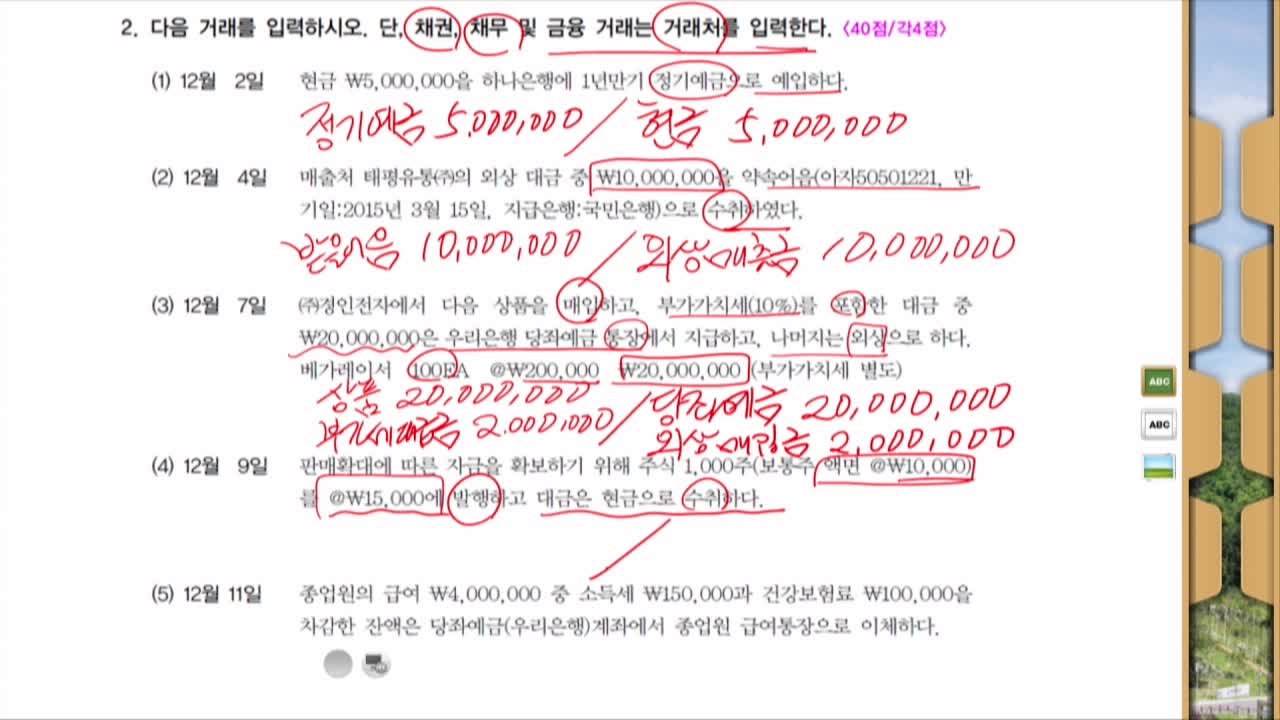 2. 다음 거래를 입력하시오. 단, 채권, 채무 및 금융 거래는 거래처를 입력한다. 〈40점/각4점〉
(1) 12월 2일 현금 ₩5,000,000을 하나은행에 1년만기 정기예금으로 예입하다.
정기예금 5,000,000 / 현금 5,000,000
(2) 12월 4일 매출처 태평유통㈜의 외상 대금 중 ₩10,000,000을 약속어음(아자50501221, 만
기일:2015년 3월 15일, 지급은행:국민은행)으로 수취하였다.
받을어음 10,000,000 / 외상매출금 10,000,000
(3) 12월 7일 ㈜정인전자에서 다음 상품을 매입하고, 부가가치세(10%)를 포함한 대금 중
₩20,000,000은 우리은행 당좌예금 통장에서 지급하고, 나머지는 외상으로 하다.
베가레이서 100EA @₩200,000 ₩20,000,000 (부가가치세 별도)
상품 20,000,000 / 당좌예금 20,000,000
부가세대급금 2.000,000 외상매입금 2,000,000
(4) 12월 9일 판매확대에 따른 자금을 확보하기 위해 주식 1,000주(보통주 액면 @₩10,000)
를 @₩15,000에 발행하고 대금은 현금으로 수취하다.
(5) 12월 11일 종업원의 급여 ₩4,000,000 중 소득세 ₩150,000과 건강보험료 ₩100,000을
차감한 잔액은 당좌예금(우리은행)계좌에서 종업원 급여통장으로 이체하다.
ABC
ABC